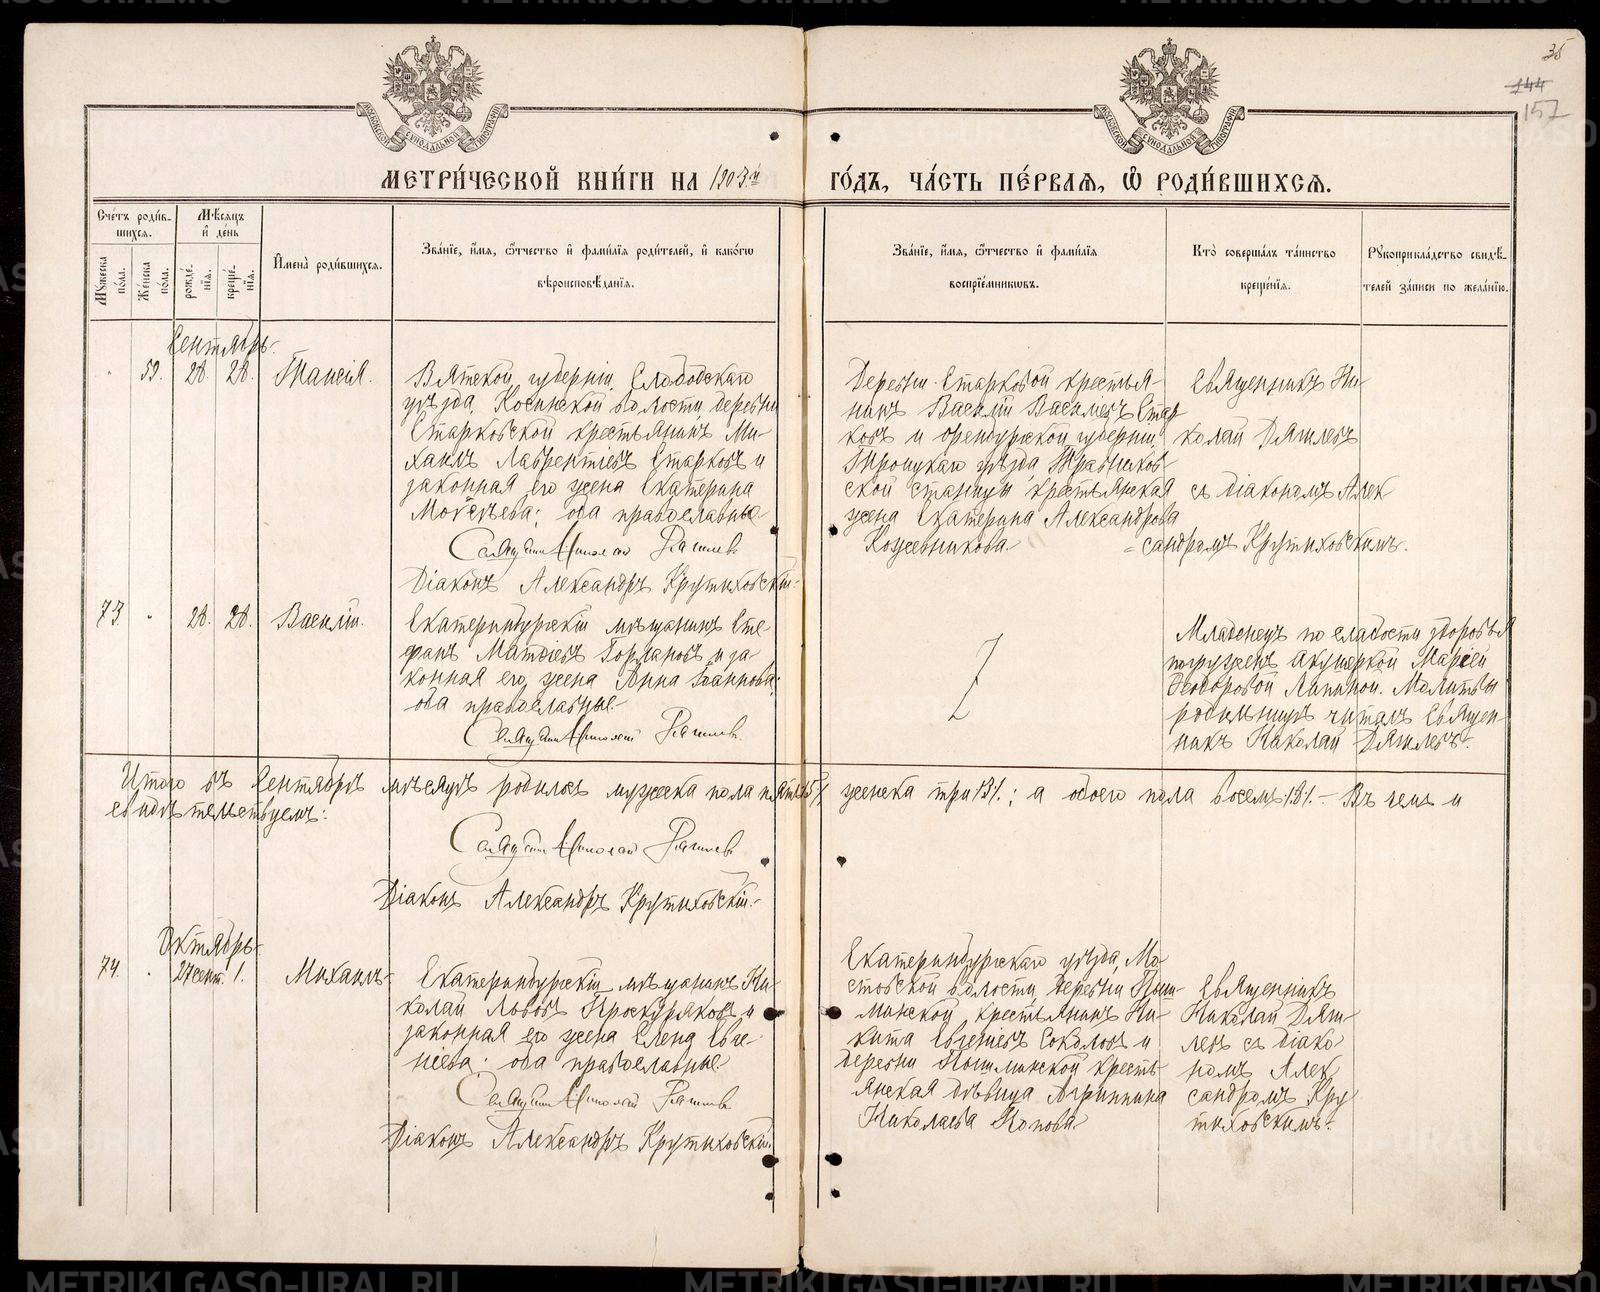 35
144
157
МЕТРИ́ЧЕСКОЙ КНИ́ГИ НА 1903й
ГО́ДЪ, ЧА́СТЬ ПЕ́РВАѦ, Ѿ РОДИ́ВШИХСѦ.
Сче́тъ роди́в-
шихся.
Мѣ́сяцъ
и҆ де́нь
Мꙋ́жеска
по́ла.
Же́нска
по́ла.
рожде́-
нїя.
креще́-
нїя.
И҆мена̀ роди́вшихся.
Зва́нїе, и҆́мя, ѻ҆́тчество и҆ фами́лїя роди́телей, и҆ како́гѡ
вѣроисповѣ́данїя.
Зва́нїе, и҆́мя, ѻ҆́тчество и҆ фами́лїя
воспрїе́мникѡвъ.
Кто̀ соверша́лъ та́инство
креще́нїя.
Рꙋкоприкла́дство свидѣ́-
телей за́писи по жела́нїю.
Сентябрь.
59. 28. 28. Таисія.
Вятской губерніи, Слободскаго
уѣзда, Косинской волости деревни
Старковской крестьянинъ Ми-
хаилъ Лаврентіевъ Старковъ и
законная его жена Екатерина
Моѵсѣева; оба православные
Священникъ Николай
Діаконъ Александръ Крутиховскій.
Деревни Старковой крестья-
нинъ Василій Васильевъ Стар
ковъ и Оренбургской губерніи,
Троицкаго уѣзда Травников-
ской станицы крестьянская
жена Екатерина Александрова
Кожевникова
Священникъ Ни-
колай
съ діакономъ Алек
=сандромъ Крутиховскимъ.
73. 28. 28. Василій.
Екатеринбургскій мѣщанинъ Сте-
фанъ Матѳіевъ и за-
конная его жена Анна Іоаннова;
оба православные.
Священникъ Николай
Младенецъ по слабости здоровья
погруженъ акушеркой Маріей
Ѳеодоровой Молитвы
родильницѣ читалъ Священ-
никъ Николай
Итого въ Сентябрѣ мѣсяцѣ родилось мужска пола пять /5/, женска три /3/.; а обоего пола восемь /8/. – Въ чемъ и
свидѣтельствуемъ:
Священникъ Николай
Діаконъ Александръ Крутиховскій.
Октябрь
74. 27 сент. 1. Михаилъ
Екатеринбургскій мѣщанинъ Ни-
колай Львовъ Проскуряковъ и
законная его жена Елена Евге-
ніева; оба православные
Священникъ Николай
Діаконъ Александръ Крутиховскій
Екатеринбургскаго уѣзда, Мо-
стовской волости, деревни Пыш-
минской, крестьянинъ Ни-
кита Евгеніевъ Соколовъ и
деревни Пышминской кресть-
янская дѣвица Агриппина
Николаева Попова
Священникъ
Николай
съ діако
номъ Алек
сандромъ Кру
тиховскимъ.